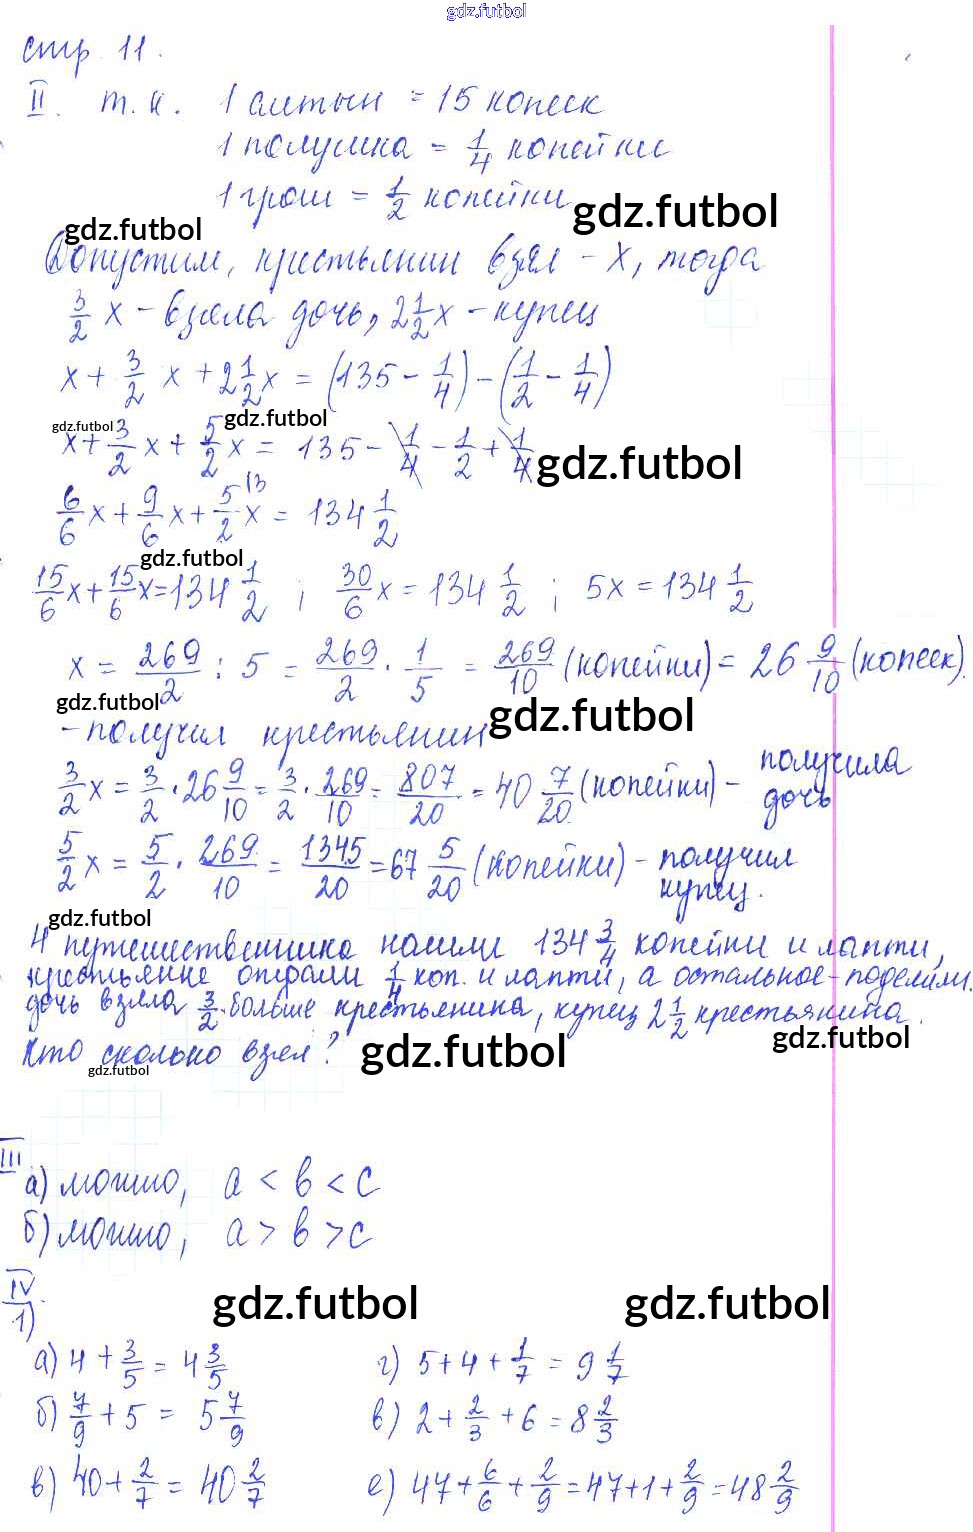 gdz.futbol
стр. 11.
II. т.к. 1 алтын = 15 копеек
1 полушка = 1/4 копейки
1 грош = 1/2 копейки
gdz.futbol
gdz.futbol
Допустим, крестьянин взял - x, тогда
3/2 x - взяла дочь, 2 1/2 x - купец
x + 3/2 x + 2 1/2 x = (135 - 1/4) - (1/2 - 1/4)
gdz.futbol gdz.futbol
x + 3/2 x + 5/2 x = 135 - 1/4 - 1/2 + 1/4
gdz.futbol
6/6 x + 9/6 x + 5/2 x = 134 1/2
gdz.futbol
15/6 x + 15/6 x = 134 1/2 ; 30/6 x = 134 1/2 ; 5x = 134 1/2
x = 269/2 : 5 = 269/2 · 1/5 = 269/10 (копейки) = 26 9/10 (копеек).
gdz.futbol
- получил крестьянин
gdz.futbol
3/2 x = 3/2 · 26 9/10 = 3/2 · 269/10 = 807/20 = 40 7/20 (копейки) - получила дочь
5/2 x = 5/2 · 269/10 = 1345/20 = 67 5/20 (копейки) - получил купец.
gdz.futbol
4 путешественника нашли 134 3/4 копейки и лапти,
крестьяне отдали 1/4 коп. и лапти, а остальное - поделили.
дочь взяла 3/2 больше крестьянина, купец 2 1/2 крестьянина.
gdz.futbol
Кто сколько взял?
gdz.futbol
gdz.futbol
III
а) можно, a < b < c
б) можно, a > b > c
IV
gdz.futbol gdz.futbol
1)
а) 4 + 3/5 = 4 3/5 г) 5 + 4 + 1/7 = 9 1/7
б) 7/9 + 5 = 5 7/9 в) 2 + 2/3 + 6 = 8 2/3
в) 40 + 2/7 = 40 2/7 е) 47 + 6/6 + 2/9 = 47 + 1 + 2/9 = 48 2/9